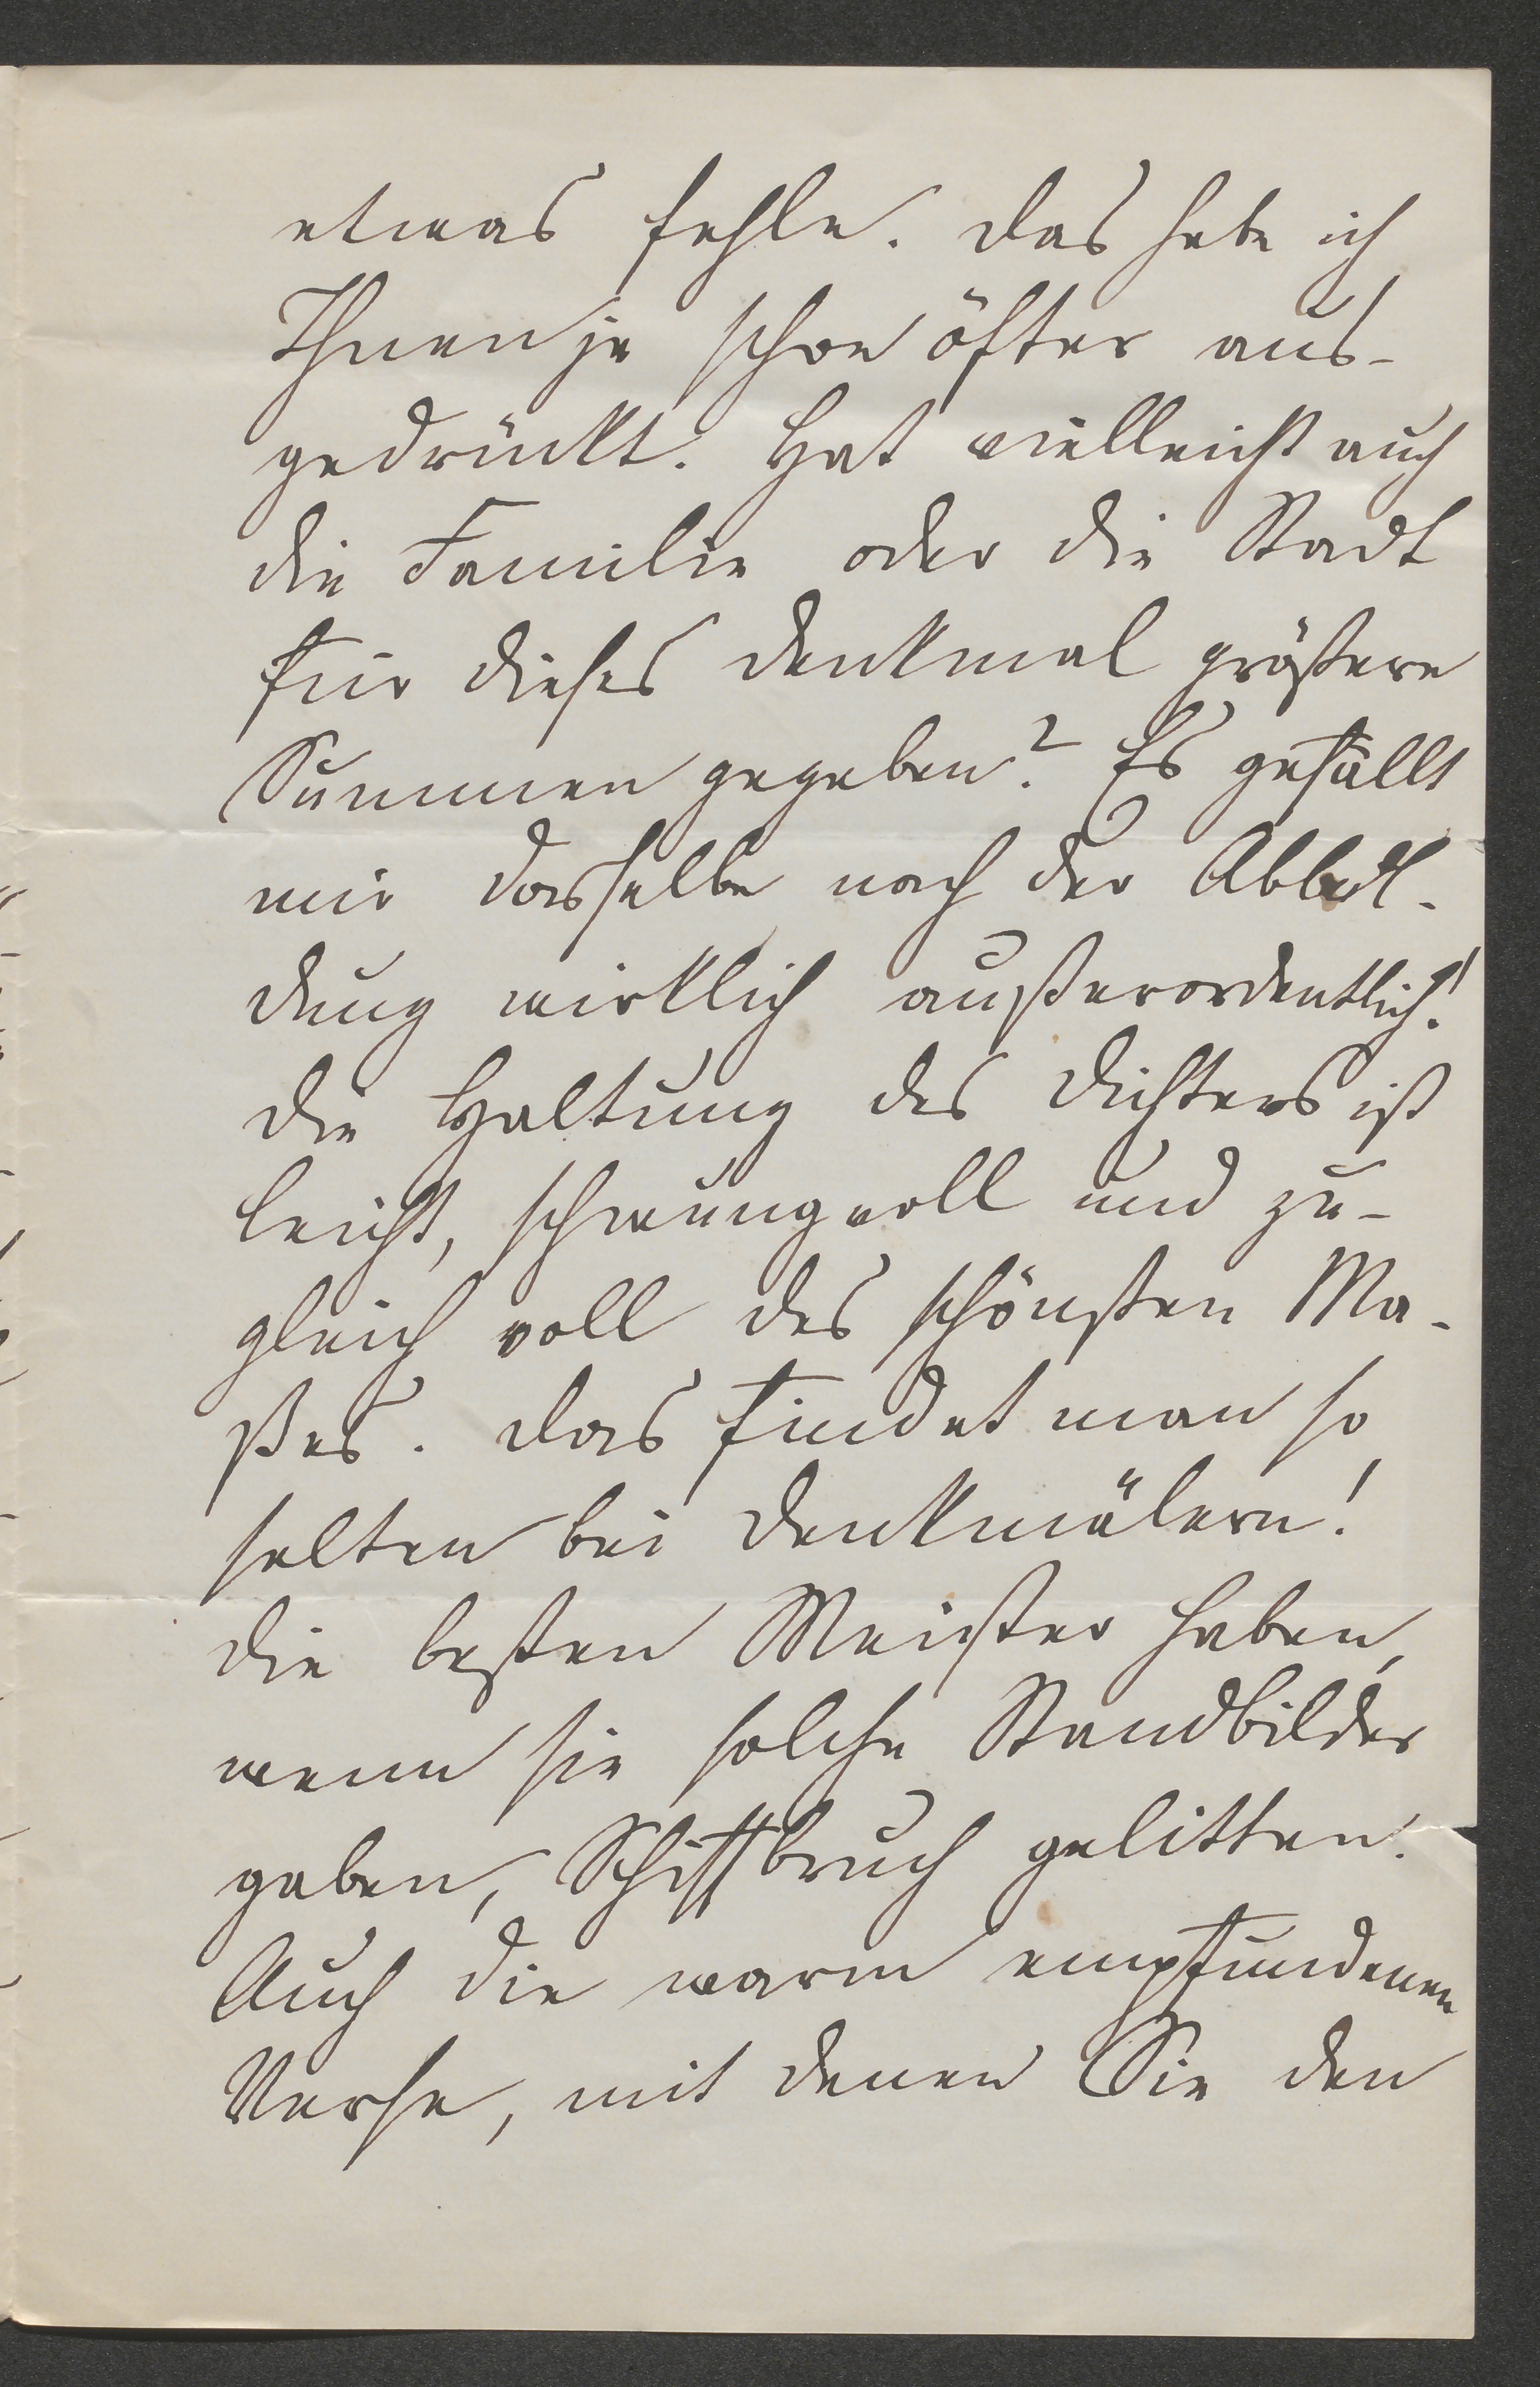 etwas fehle. Das habe ich
Ihnen ja schon öfter aus-
gedrückt. Hat vielleicht auch
die Familie oder die Stadt
für dieses Denkmal größere
Summen gegeben? Es gefällt
mir dasselbe nach der Abbil-
dung wirklich außerordentlich!
Die Haltung des Dichters ist
leicht, schwungvoll und zu-
gleich voll des schönsten Ma-
ßes. Das findet man so
selten bei Denkmälern!
Die besten Meister haben,
wenn sie solche Standbilder
gaben, Schiffbruch gelitten.
Auch die warm empfundenen
Verse, mit denen Sie den